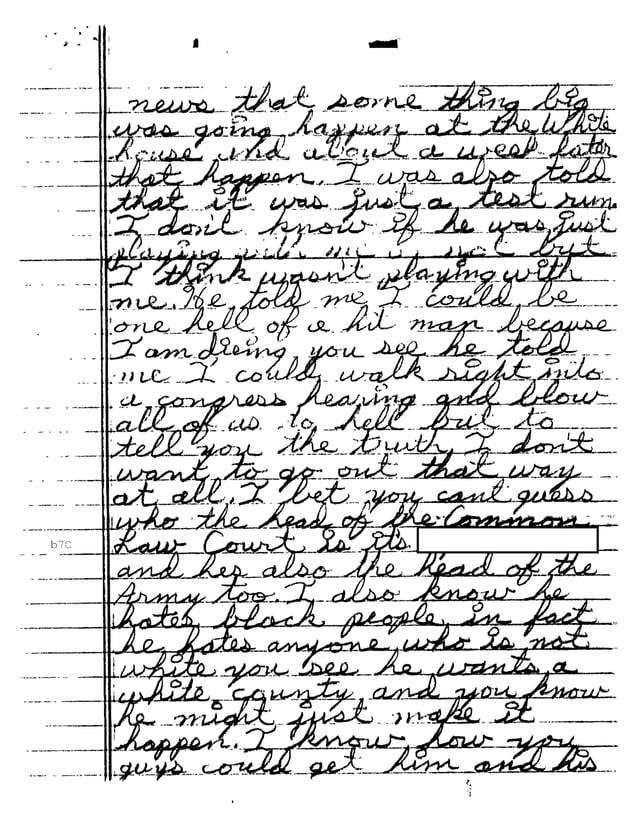 news that some thing big
was going happen at the White
house and about a week later
that happen. I was also told
that it was just a test run.
I don't know if he was just
playing with me or not but
I think wasn't playing with
me. he told me I could be
one hell of a hit man because
I am dieing you see he told
me I could walk right into
a congress hearing and blow
all of us to hell but to
tell you the truth I don't
want to go out that way
at all. I bet you cant guess
who the head of the Common
b7C
Law Court is its
and hes also the head of the
Army too. I also know he
hates black people in fact
he hates anyone who is not
white you see he wants a
white county and you know
he might just make it
happen. I know how you
guys could get him and his